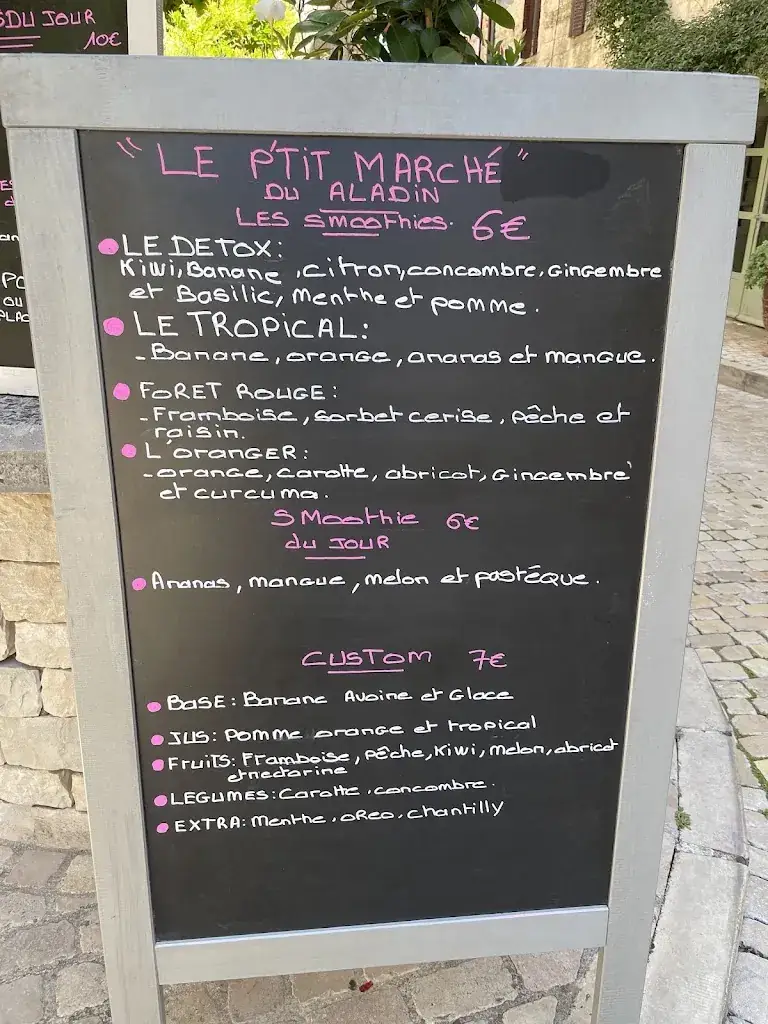 SDU JOUR
10€
" LE P'TIT MARCHÉ "
DU ALADIN
LES SMOOTHIES. 6€
LE DETOX:
Kiwi, Banane, citron, concombre, Gingembre
et Basilic, menthe et pomme.
LE TROPICAL:
- Banane, orange, ananas et mangue.
FORET ROUGE:
- Framboise, sorbet cerise, pêche et
raisin.
L'ORANGER:
- orange, carotte, abricot, Gingembre
et curcuma.
SMOOTHIE 6€
du JOUR
Ananas, mangue, melon et pastèque.
CUSTOM 7€
BASE: Banane Avoine et Glace
JUS: Pomme orange et tropical
FRUITS: Framboise, pêche, Kiwi, melon, abricot
et nectarine
LEGUMES: Carotte, concombre.
EXTRA: Menthe, oreo, chantilly